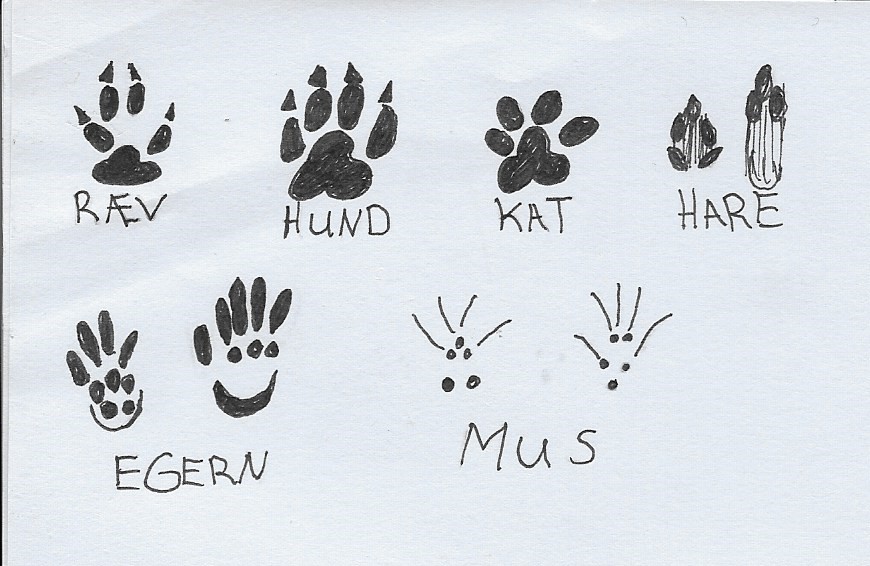 RÆV HUND KAT HARE
EGERN MUS